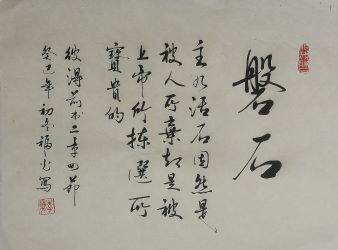 磐石
主乃活石固然是
被人所棄却是被
上帝所揀選所
寶貴的
彼得前书二章四節
癸巳年初冬福光寫